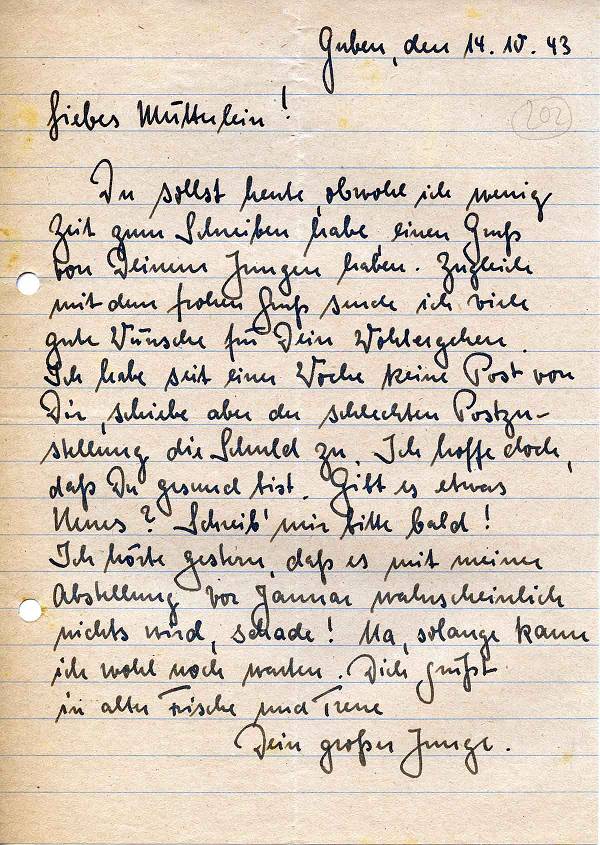 Guben, den 14.10.43
202
Liebes Mütterlein!
Du sollst heute, obwohl ich wenig
Zeit zum Schreiben habe, einen Gruß
von Deinem Jungen haben. Zugleich
mit dem frohen Gruß sende ich viele
gute Wünsche für Dein Wohlergehen.
Ich habe seit einer Woche keine Post von
Dir, schiebe aber der schlechten Postzu-
stellung die Schuld zu. Ich hoffe doch,
daß Du gesund bist. Gibt es etwas
Neues? Schreib' mir bitte bald!
Ich hörte gestern, daß es mit meiner
Abstellung vor Januar wahrscheinlich
nichts wird, schade! Na, solange kann
ich wohl noch warten. Dich grüßt
in alter Frische und Treue
Dein großer Junge.